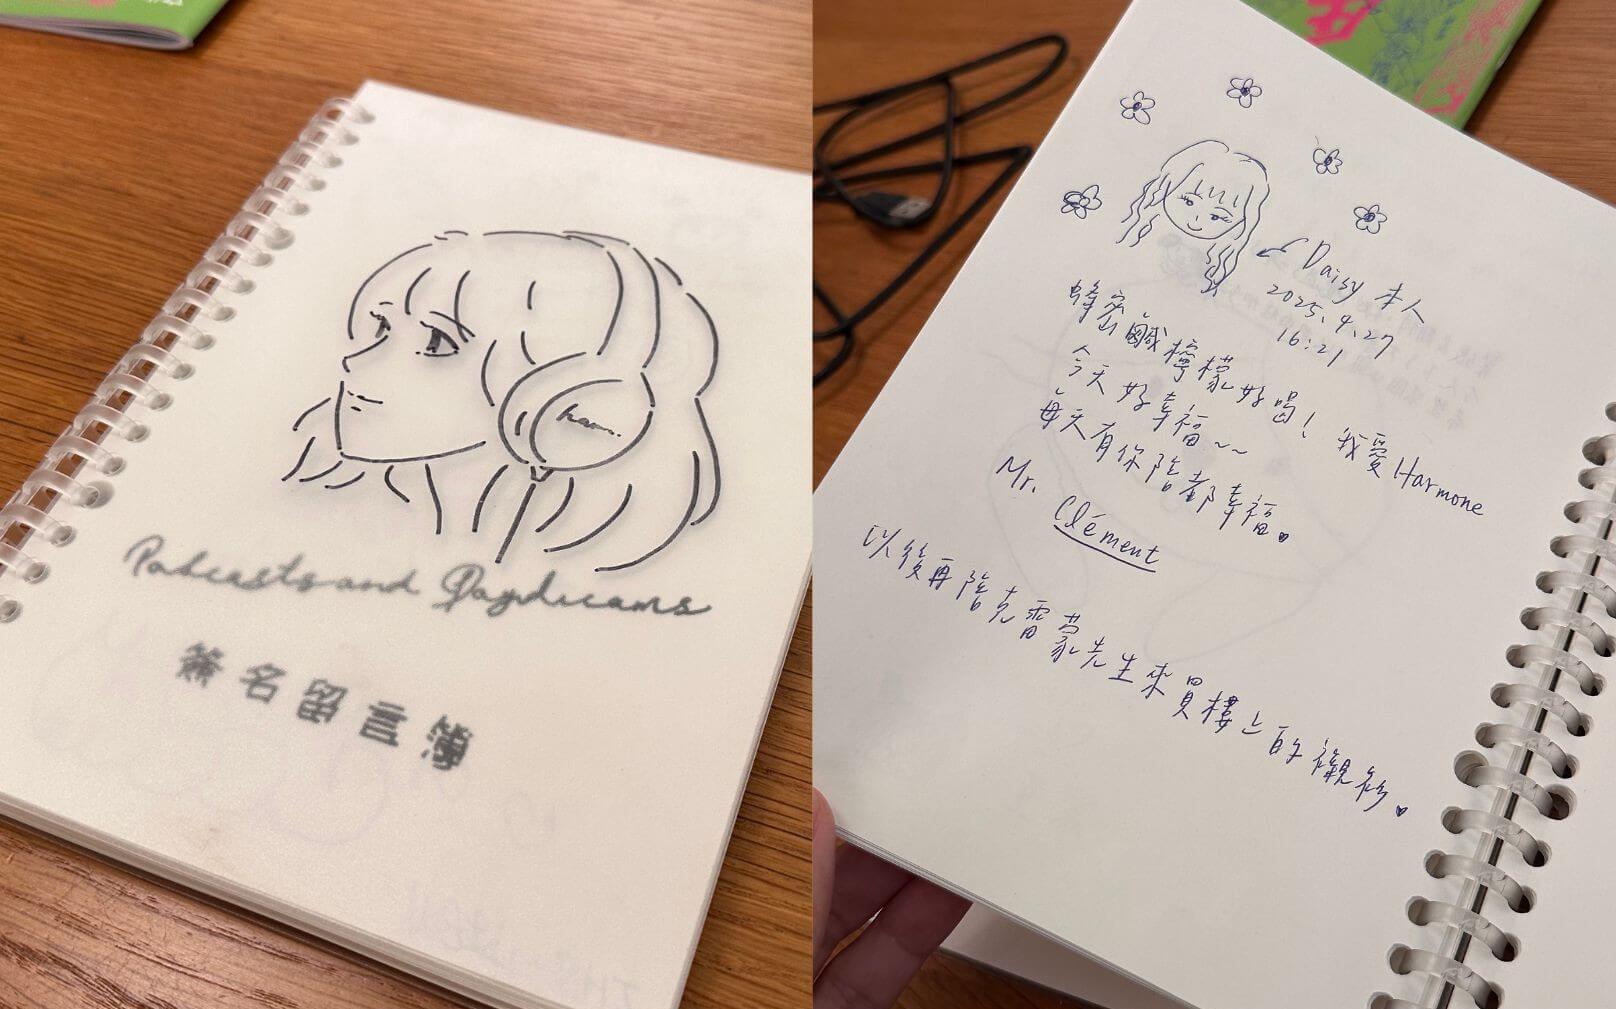 ham.
Podcasts and Daydreams
簽名留言簿
Daisy 本人
2025.4.27
16:21
蜂蜜鹹檸檬好喝! 我愛 Harmone
今天好幸福~~
每天有你陪都幸福。
Mr. Clément
以後再陪克雷蒙先生來買樓上的襯衫。